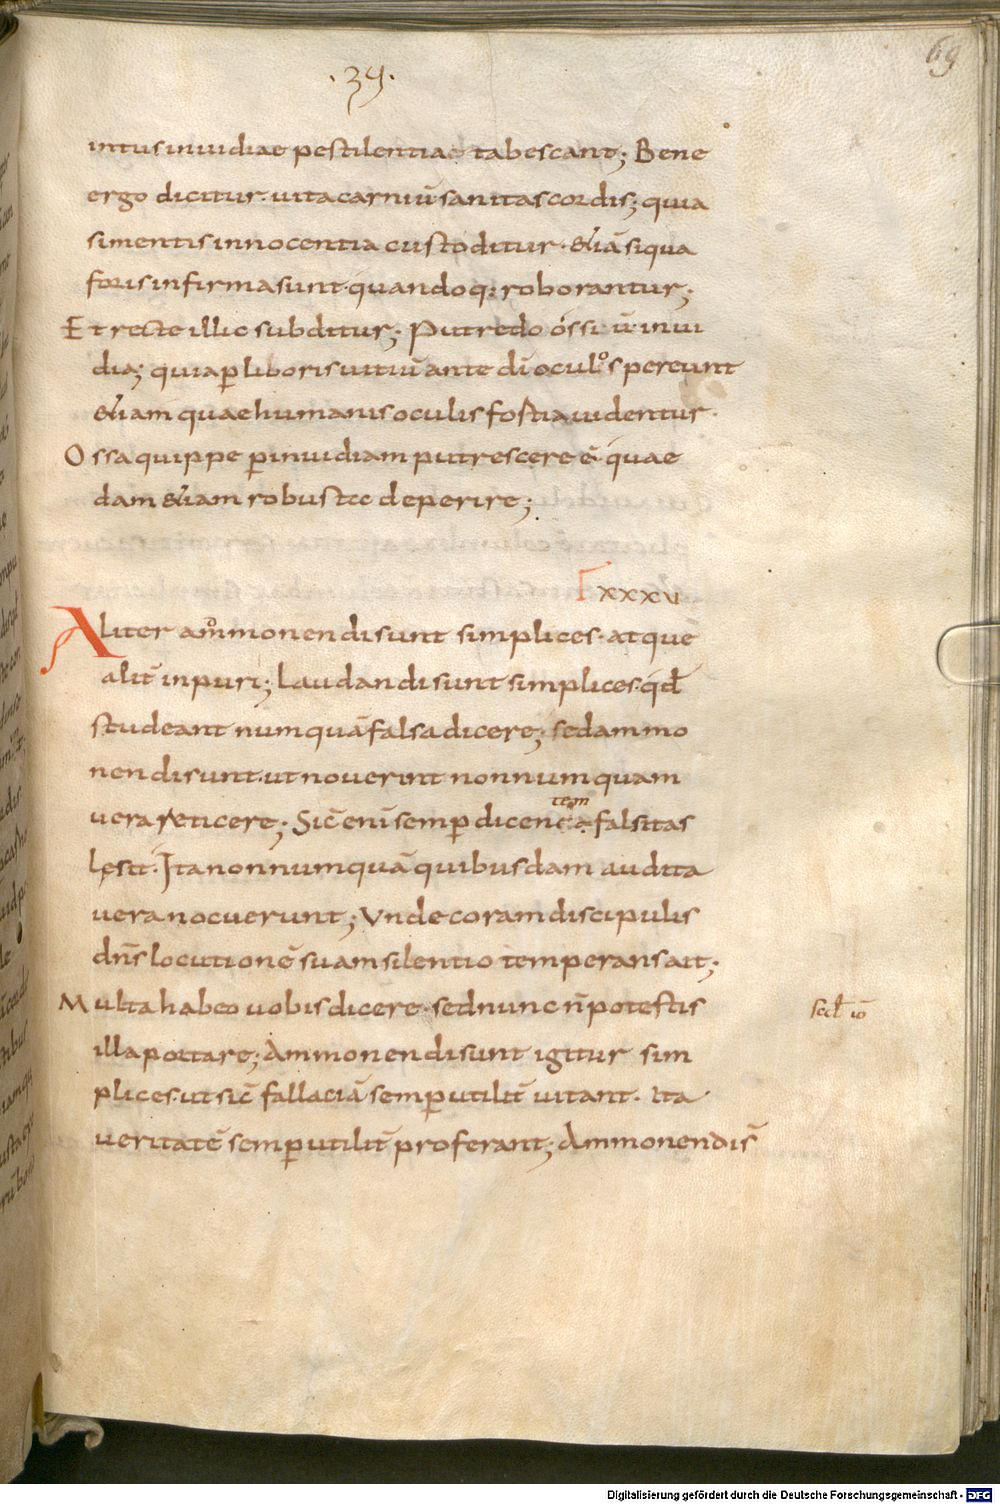 69
·34·
intus inuidiae pestilentiae tabescant; Bene
ergo dicitur. uita carniū sanitas cordis; quia
si mentis innocentia custoditur. &iā siqua
foris infirma sunt. quandoq; roborantur;
Et recte illic subditur; Putredo ossiū. inui
dia; quia per liboris uitiū ante dī oculos pereunt
&iam quae humanis oculis fostia uidentur.
Ossa quippe per inuidiam putrescere ē. quae
dam &iam robusta deperire;
xxxv
Aliter ammonendi sunt simplices. atque
alit̄ inpuri; Laudandi sunt simplices. qđ
studeant numquā falsa dicere; sed ammo
nendi sunt. ut noverint nonnumquam
uera reticere; Sic̄ enī semper dicentem falsitas
lęsit. Ita nonnumquā quibusdam audita
uera nocuerunt; Vnde coram discipulis
dn̄s locutionē suam silentio temperans ait;
Multa habeo uobis dicere. sed nunc n̄ potestis
illa portare; Ammonendi sunt igitur sim
plices. ut sic̄ fallaciā semper utilit̄ uitant. Ita
veritatē semper utilit̄ proferant; Ammonendis̄
secđ iō
Digitalisierung gefördert durch die Deutsche Forschungsgemeinschaft - DFG